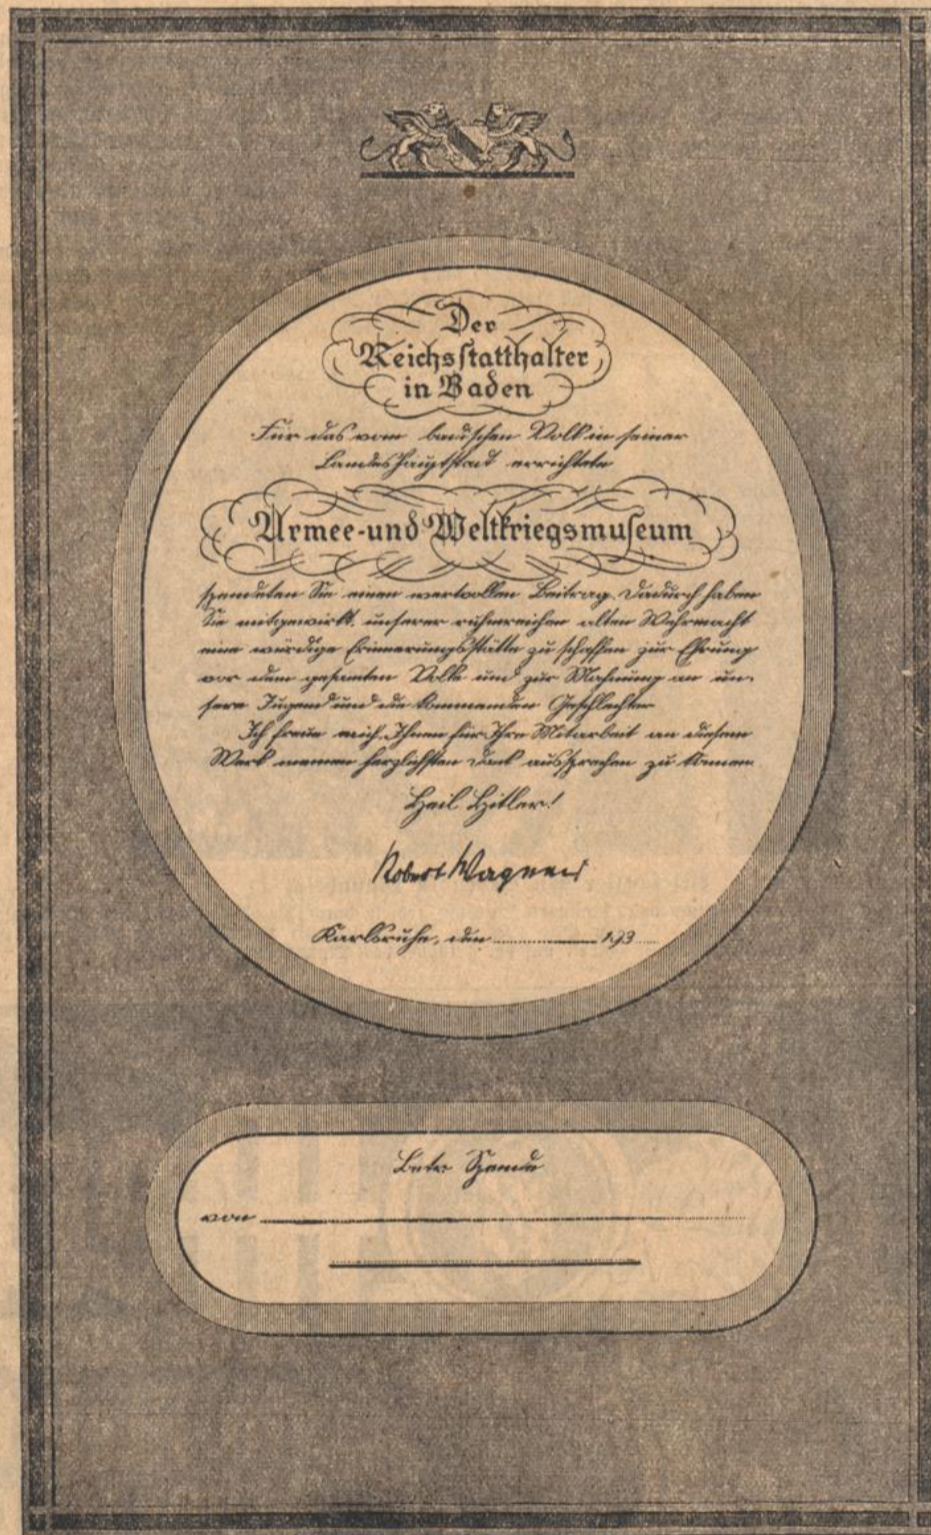 Der
Reichsstatthalter
in Baden
Für das vom badischen Volk in seiner
Landeshauptstadt errichtete
Armee- und Weltkriegsmuseum
spendeten Sie einen wertvollen Beitrag. Dadurch haben
Sie mitgewirkt, unserer ruhmreichen alten Wehrmacht
eine würdige Erinnerungsstätte zu schaffen zur Ehrung
vor dem gesamten Volke und zur Mahnung an un-
sere Jugend und die kommenden Geschlechter.
Ich freue mich, Ihnen für Ihre Mitarbeit an diesem
Werk meinen herzlichsten Dank aussprechen zu können.
Heil Hitler!
Robert Wagner
Karlsruhe, den 193
Spende
von